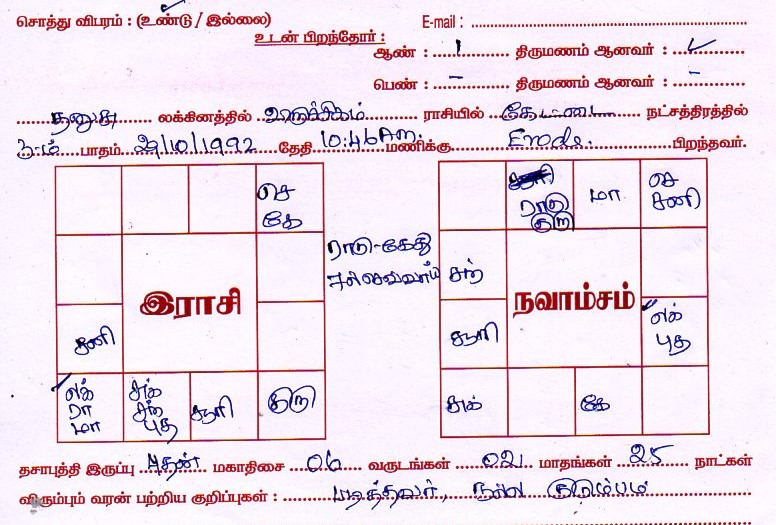 சொத்து விபரம் : (உண்டு / இல்லை) E-mail :
உடன் பிறந்தோர் :
ஆண் : 1 திருமணம் ஆனவர் : ✓
பெண் : - திருமணம் ஆனவர் : -
தனுசு லக்கினத்தில் விருச்சிகம் ராசியில் கேட்டை நட்சத்திரத்தில்
3-ம் பாதம் 29/10/1992 தேதி 10:46 Am. மணிக்கு Erode. பிறந்தவர்.
செ
கே
ராகு-கேது
7ல் செவ்வாய்
இராசி
சனி
லக்
ரா
மா
சுக்
சந்
புத
சூரி
குரு
ராகு
குரு
மா
செ
சனி
சந்
நவாம்சம்
சூரி
லக்
புத
சுக்
கே
தசாபுத்தி இருப்பு புதன் மகாதிசை 06 வருடங்கள் 02 மாதங்கள் 25 நாட்கள்
விரும்பும் வரன் பற்றிய குறிப்புகள் : படித்தவர், நல்ல குடும்பம்